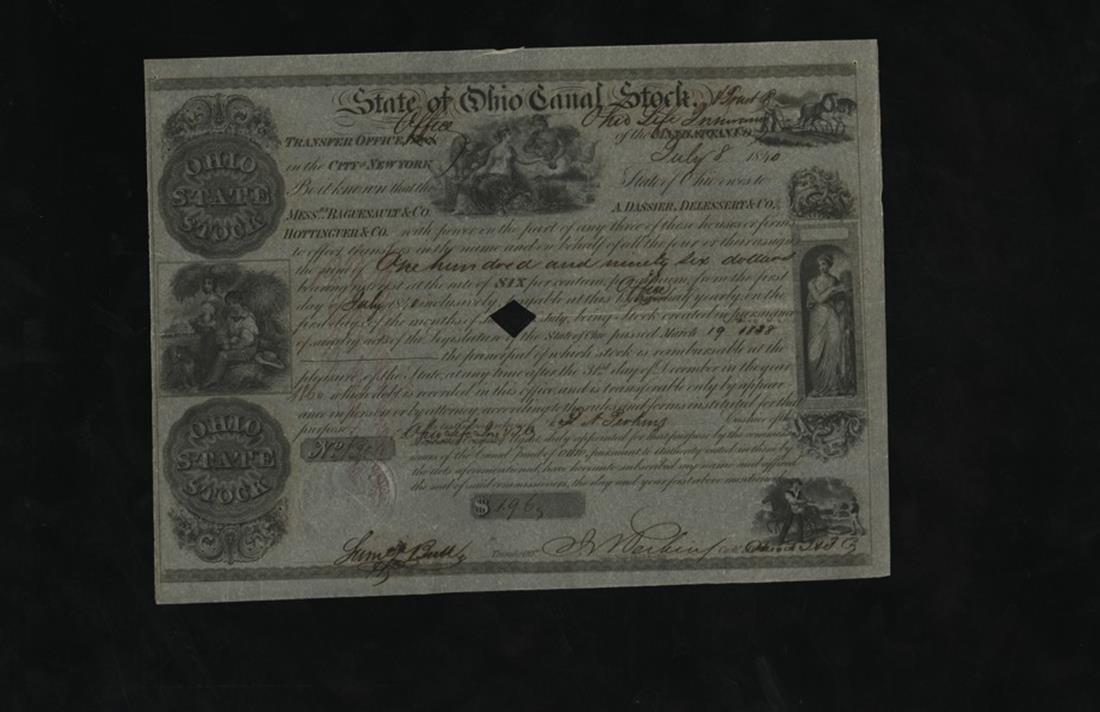 State of Ohio Canal Stock.
Office
Ohio Life Insurance & Trust Co
TRANSFER OFFICE,
of the MANHATTAN CO.
in the CITY of NEW YORK
July 8 1840
Be it known that the
State of Ohio owes to
MESS.RS RAGUENAULT & CO.
A. DASSIER, DELESSERT & CO.
HOTTINGUER & CO. with power on the part of any three of these houses or firms
to effect transfers in the name and on behalf of all the four or their assigns
the sum of One hundred and ninety six dollars
bearing interest at the rate of SIX per centum per annum from the first
day of July 1840 inclusively, payable at this Office half yearly, on the
first days of the months of July, being Stock created in pursuance
of sundry acts of the Legislature of the State of Ohio passed March 19 1838
the principal of which stock is reimbursable at the
pleasure of the State, at any time after the 31st day of December in the year
which debt is recorded in this office, and is transferable only by appear
ance in person or by attorney, according to the rules and forms instituted for that
purpose
Cashier of the
duly appointed for that purpose by the commissi
oners of the Canal Fund of Ohio, pursuant to authority vested in them by
the acts aforementioned, have hereunto subscribed my name and affixed
the seal of said commissioners, the day and year first above mentioned
No
$ 196
Transfer
OHIO
STATE
STOCK
OHIO
STATE
STOCK